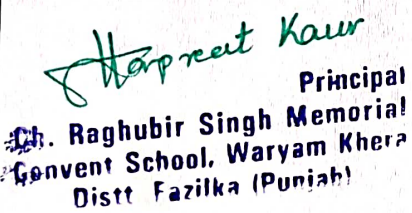 Harpreet Kaur
Principal
Ch. Raghubir Singh Memorial
Convent School, Waryam Khera
Distt Fazilka (Punjab)